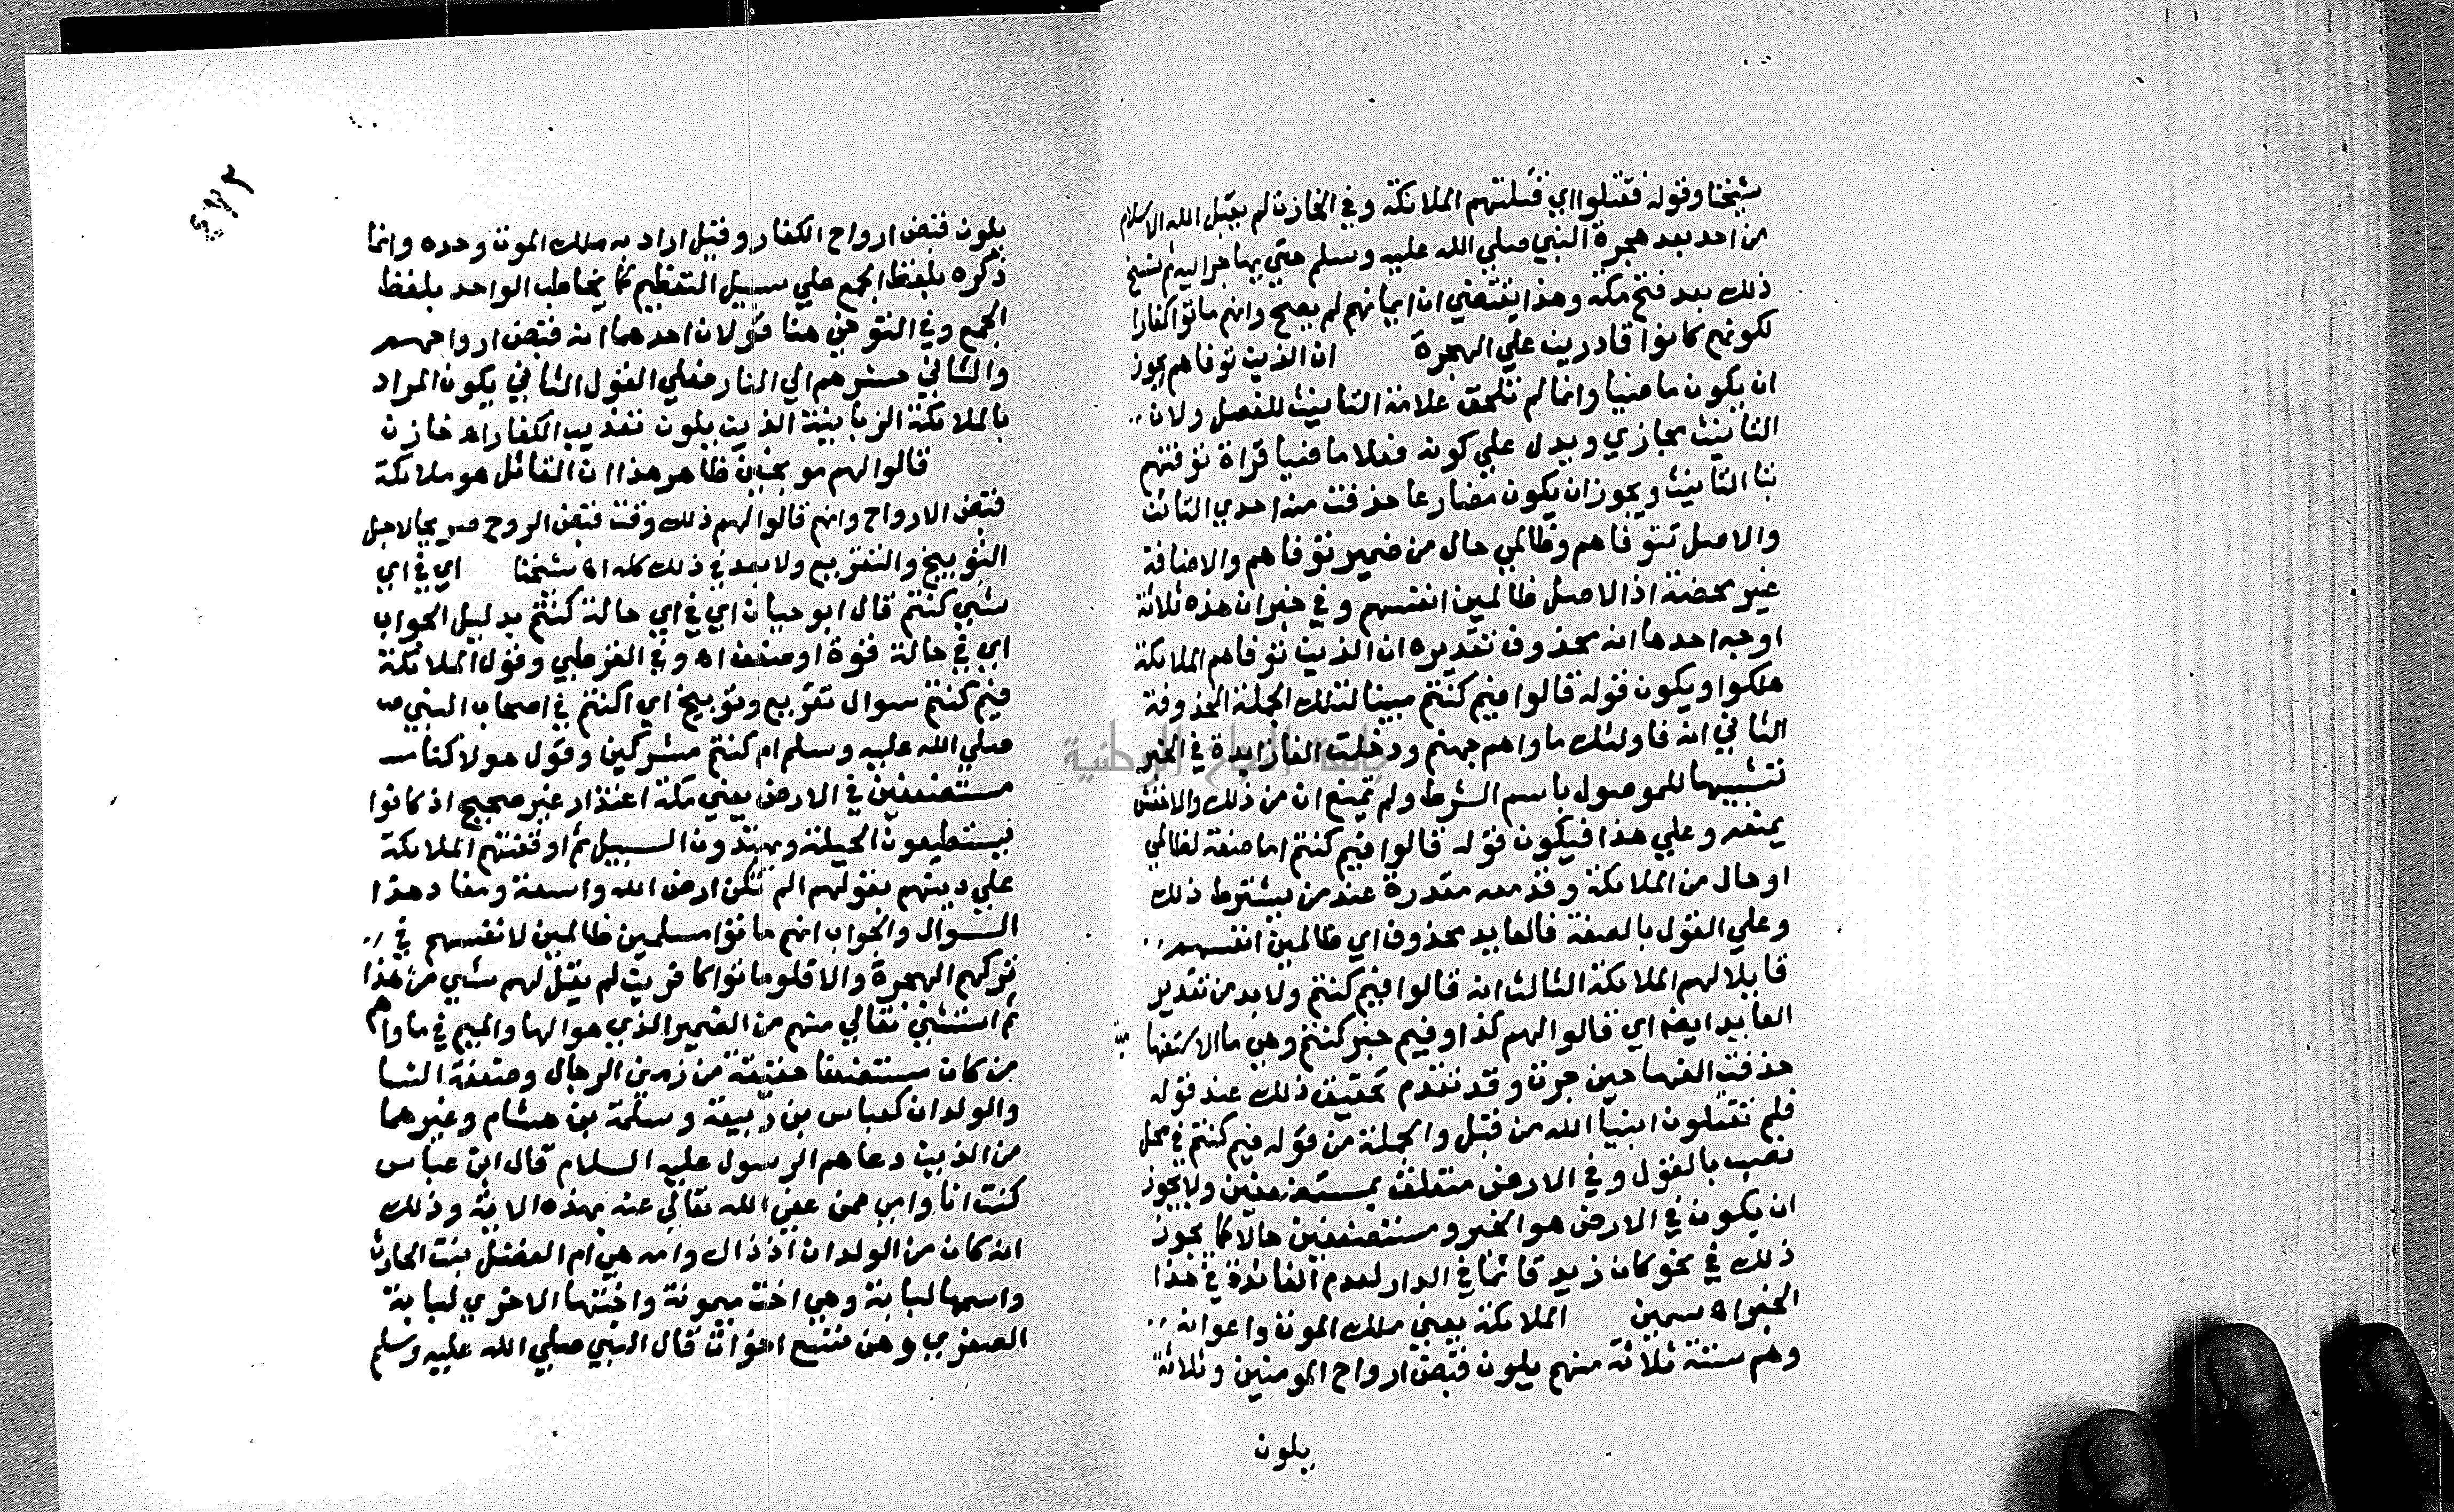 شيخنا وقوله فقتلوا اي قتلتهم الملائكة وفي الخازن لم يقبل الله الاسلام
من احد بعد هجرة النبي صلي الله عليه وسلم حتي يهاجر اليه ثم نسخ
ذلك بعد فتح مكة وهذا يقتضي ان ايمانهم لم يصح وانهم ماتوا كفارا
لكونهم كانوا قادرين علي الهجرة ان الذين توفاهم يجوز
ان يكون ماضيا وانما لم تلحق علامة التانيث للفصل ولان
التانيث مجازي ويدل علي كونه فعلا ماضيا قراة توفتهم
بتا التانيث ويجوز ان يكون مضارعا حذفت منه احدي التائين
والاصل تتوفاهم وظالمي حال من ضمير توفاهم والاضافة
غير محضة اذ الاصل ظالمين انفسهم وفي خبر ان هذه ثلاثة
اوجه احدها انه محذوف تقديره ان الذين توفاهم الملائكة
هلكوا ويكون قوله قالوا فيم كنتم مبينا لتلك الجملة المحذوفة
الثاني انه فاولئك ماواهم جهنم ودخلت الفا زايدة في الخبر
تشبيها للموصول باسم الشرط ولم تمنع ان من ذلك والاخفش
يمنعه وعلي هذا فيكون قوله قالوا فيم كنتم اما صفة لظالمي
او حال من الملائكة وقد معه مقدرة عند من يشترط ذلك
وعلي القول بالصفة فالعايد محذوف اي ظالمين انفسهم
قايلا لهم الملائكة الثالث انه قالوا فيم كنتم ولا بد من تقدير
العايد ايضا اي قالوا لهم كذا وفيم خبر كنتم وهي ما الاستفهامية
حذفت الفها حين جرت وقد تقدم تحقيق ذلك عند قوله
فلم تقتلون انبيا الله من قبل والجملة من قوله فيم كنتم في محل
نصب بالقول وفي الارض متعلق بمستضعفين ولا يجوز
ان يكون في الارض هو الخبر ومستضعفين حالا كما يجوز
ذلك في نحو كان زيد قائما في الدار لعدم الفائدة في هذا
الخبر اه سمين الملائكة يعني ملك الموت واعوانه
وهم ستة ثلاثة منهم يلون قبض ارواح المومنين وثلاثة
يلون
٤٧٣
يلون قبض ارواح الكفار وقيل اراد به ملك الموت وحده وانما
ذكره بلفظ الجمع علي سبيل التعظيم كما يخاطب الواحد بلفظ
الجمع وفي التوفي هنا قولان احدهما انه قبض ارواحهم
والثاني حشرهم الي النار فعلي القول الثاني يكون المراد
بالملائكة الزبانية الذين يلون تعذيب الكفار اه خازن
قالوا لهم موبخين ظاهر هذا ان القائل هو ملائكة
قبض الارواح وانهم قالوا لهم ذلك وقت قبض الروح صريحا لاجل
التوبيخ والتقريع ولا بعد في ذلك كله اه شيخنا اي في اي
شي كنتم قال ابو حيان اي في اي حالة كنتم بدليل الجواب
اي في حالة قوة او ضعف اه وفي القرطبي وقول الملائكة
فيم كنتم سوال تقريع وتوبيخ اي اكنتم في اصحاب النبي ص
صلي الله عليه وسلم ام كنتم مشركين وقول هولا كنا
مستضعفين في الارض يعني مكة اعتذار غير صحيح اذ كانوا
يستطيعون الحيلة ويهتدون السبيل ثم اوقفتهم الملائكة
علي دينهم بقولهم الم تكن ارض الله واسعة ومفاد هذا
السوال والجواب انهم ماتوا مسلمين ظالمين لانفسهم في
تركهم الهجرة والا فلو ماتوا كافرين لم يقل لهم شي من هذا
ثم استثني تعالي منهم من الضمير الذي هو الها والميم في ماواهم
من كان مستضعفا حقيقة من زمني الرجال وضعفة النسا
والولدان كعياش بن ربيعة وسلمة بن هشام وغيرهما
من الذين دعا هم الرسول عليه السلام قال ابن عباس
كنت انا وامي ممن عفي الله تعالي عنه بهذه الاية وذلك
انه كان من الولدان اذ ذاك وامه هي ام الفضل بنت الحارث
واسمها لبابة وهي اخت ميمونة واختها الاخري لبابة
الصغري وهن تسع اخوات قال النبي صلي الله عليه وسلم
جامعة النجاح الوطنية